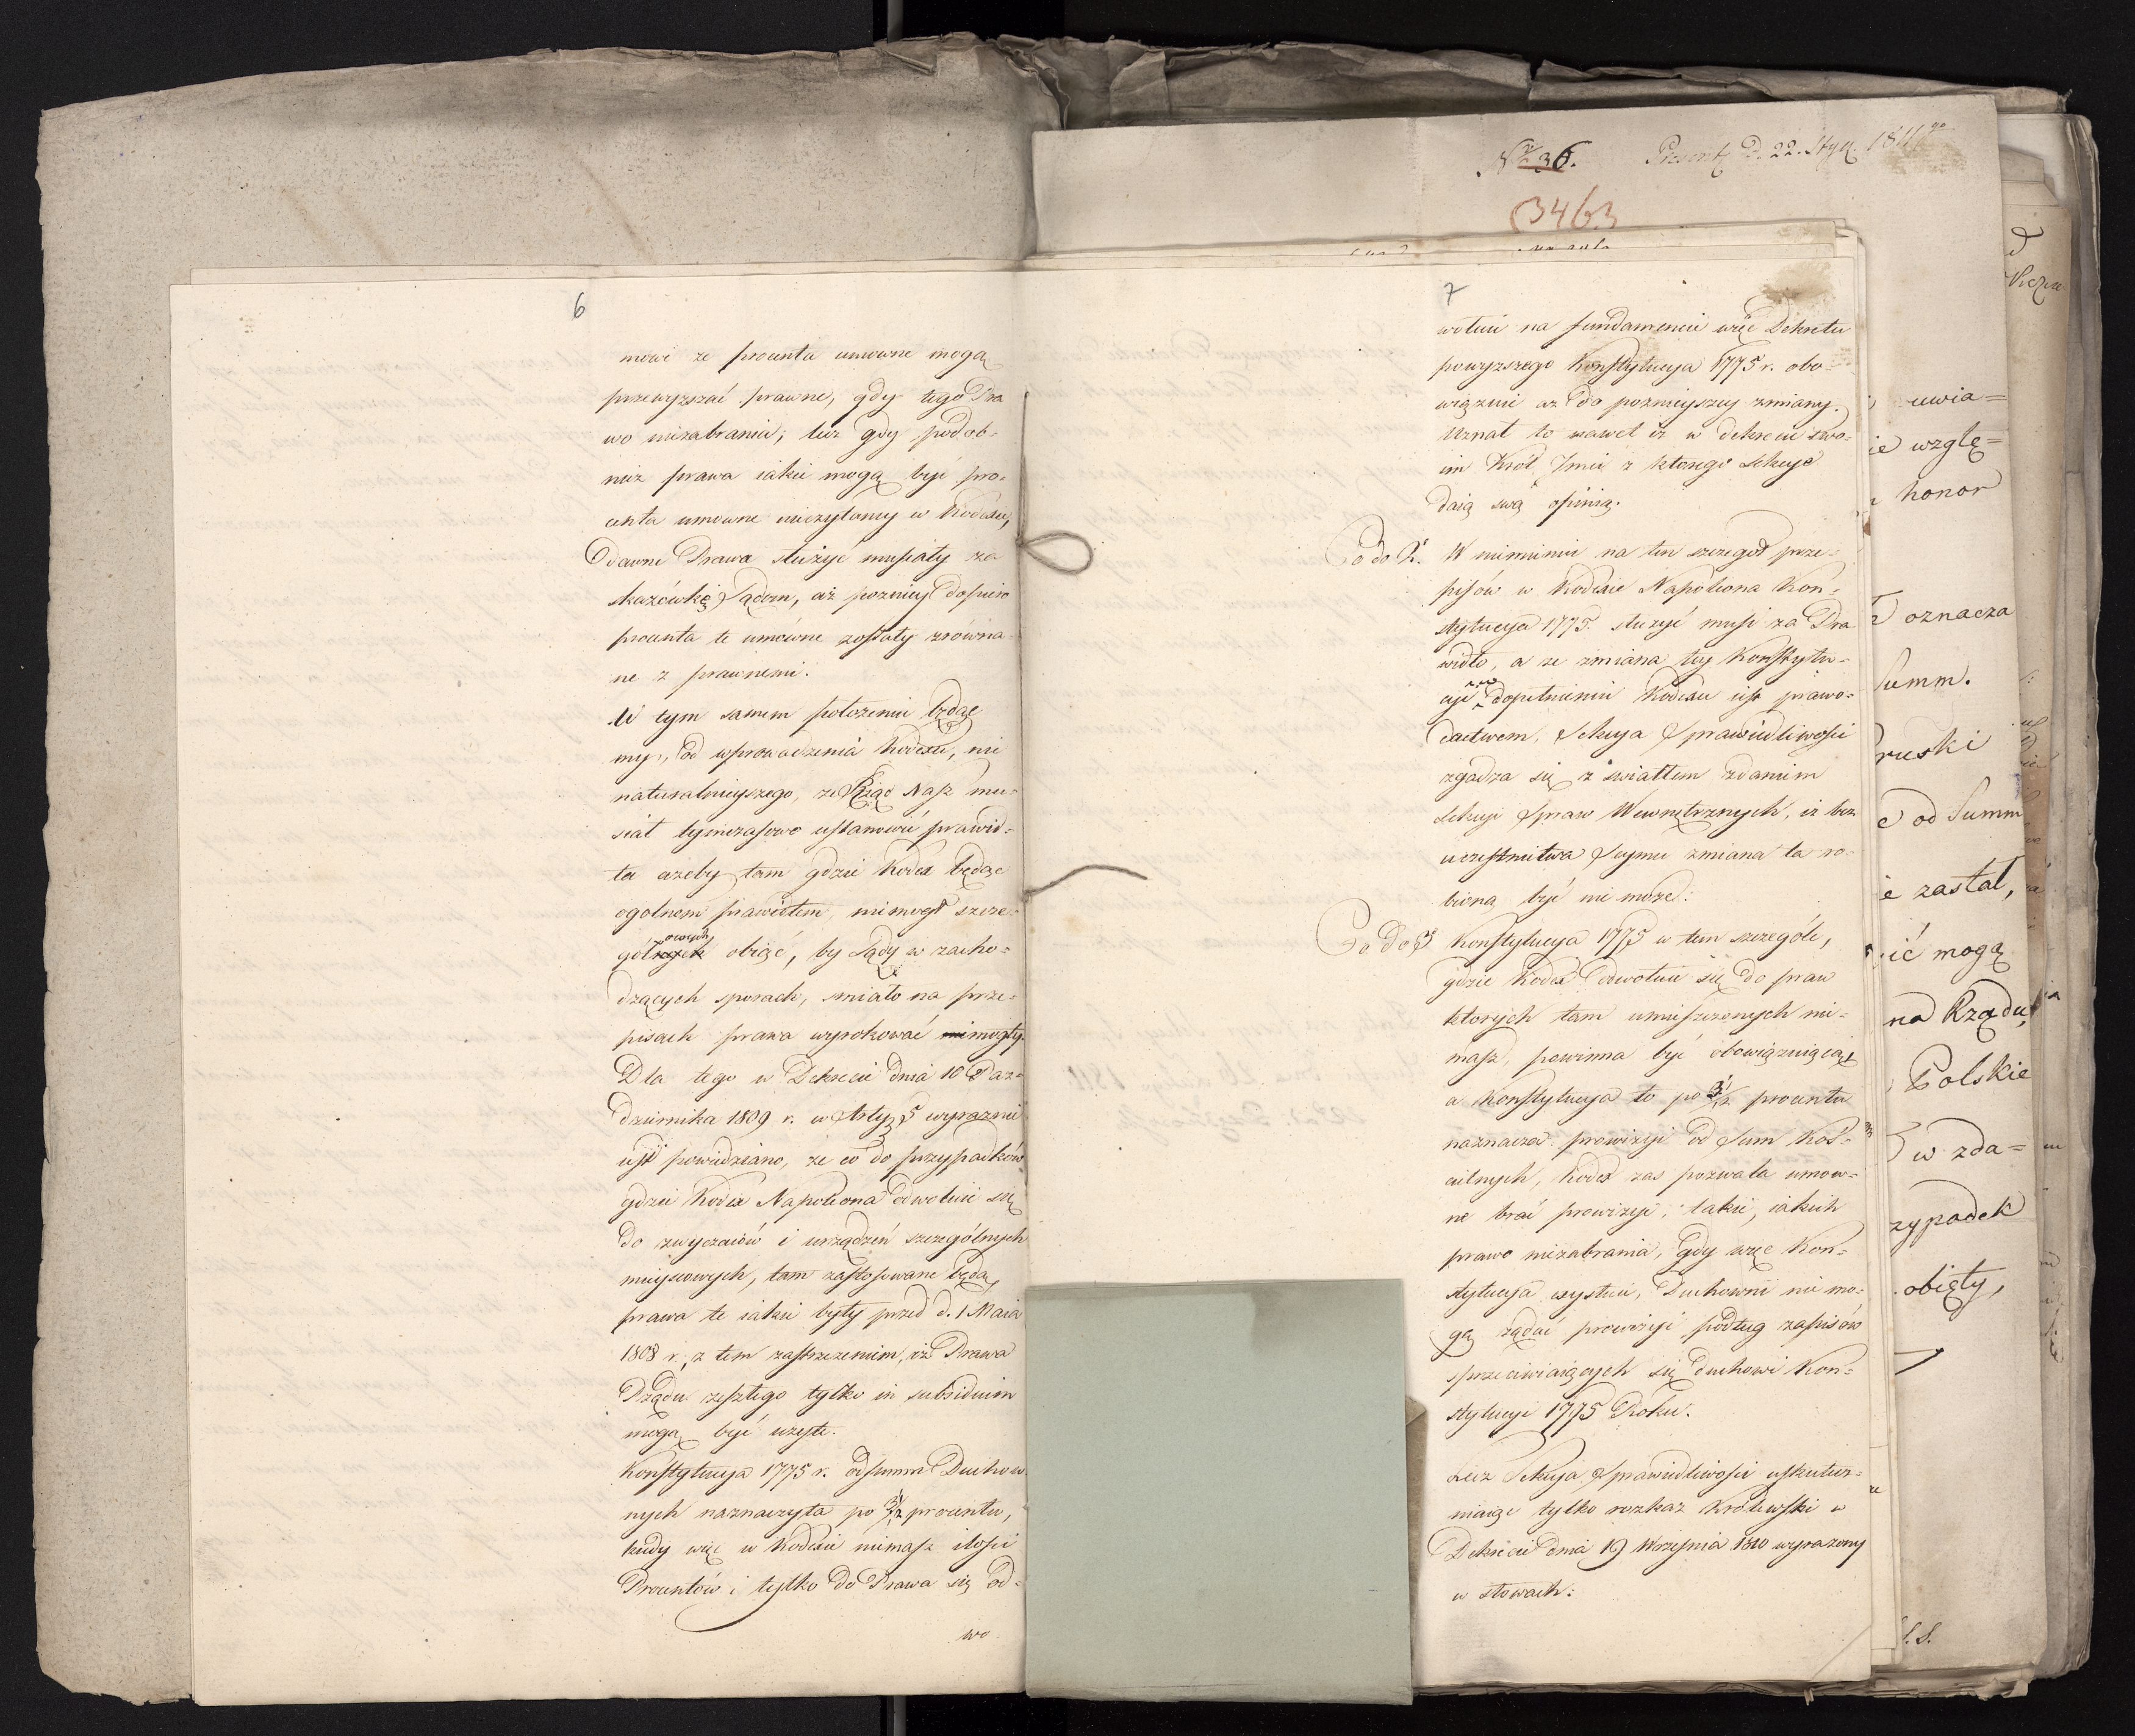 6
mowi ze procenta umowne mogą
przewyższać prawne, gdy tego Pra
wo niezabrania; lecz gdy podob-
nież prawa iakie mogą być pro-
centa umowne nieczytamy w Kodexie,
dawne Prawa służyć musiały za
skazówkę Sądom, aż pozniey dopiero
procenta te umówne zostały zrówna-
ne z prawnemi.
W tym samem położeniu będąc
my, od wprowadzenia Kodexu, nic
naturalnieyszego, że Rząd Nasz mu-
siał tymczasowo ustanowić prawid-
ła ażeby tam gdzie Kodex będąc
ogólnem prawidłem, niemógł szcze-
gółowych obiąć, by Sądy w zacho-
dzących sporach, śmiało na prze-
pisach prawa wyrokować mogły.
Dla tego w Dekrecie dnia 10 Paź-
dziernika 1809 r. w Arty: 5 wyraznie
iest powiedziano, że co do przypadków
gdzie Kodex Napoleona odwołuie się
do zwyczaiów i urządzeń szczególnych
mieyscowych, tam zastosowane będą,
prawa te iakie były przed d. 1 Maia
1808 r., z tem zastrzezeniem, iż Prawa
Rządu zeszłego tylko in subsidium
mogą być użyte.
Konstytucya 1775 r. od summ Duchow-
nych naznaczyła po 3 1/2 procentu,
kiedy więc w Kodexie niemasz ilości
Procentów i tylko do Prawa się od-
wo
Nro 36. Praesent. D. 22. Stycz. 1811go
3463
7
wołuie na fundamencie więc Dekretu
powyzszego Konstytucya 1775 r. obo-
wiązuie az do pozniejszey zmiany.
Uznał to nawet iż w dekrecie swo-
im Król Jmci z ktorego Sekcye
daią swą opinią.
Co do 2. W niemieniu na ten szczegół prze-
pisów w Kodexie Napoleona Kon-
stytucya 1775. służyć musi za Pra
widło, a ze zmiana tey Konstytu-
cyi w dopełnieniu Kodexu iest prawo-
dactwem, Sekcya Sprawiedliwości
zgadza się z światłem zdaniem
Sekcyi Spraw Wewnętrznych, iż bez
uczestnitwa Seymu zmiana ta ro-
bioną być nie może:
Co do 3 Konstytucya 1775 w tem szczególe,
gdzie Kodex odwołuie się do praw
ktorych tam umieszczonych nie-
masz, powinna być obowiązuiącą
a Konstytucya to po 3 1/2 procentu
naznacza prowizyi od Sum Koś-
cielnych, Kodex zas pozwala umow-
ne brać prowizye, takie, iakich
prawo niezabrania, gdy więc Kon-
stytucya wystaie, Duchowni nie mo-
gą żądać prowizyi podług zapisów
sprzeciwiaiących się duchowi Kon-
stytucyi 1775 Roku.
Lecz Sekcya Sprawiedliwości uskutecz-
niaiąc tylko rozkaz Królewski w
Dekrecie dnia 19 Września 1810 wyrazony
w słowach:
uwia=
ie wzglę=
honor
oznacza
Summ.
Pruski
e od Summ
ie zastał,
ić mogą
na Rządu,
Polskie
w zda=
zypadek
obięty,
S. S.